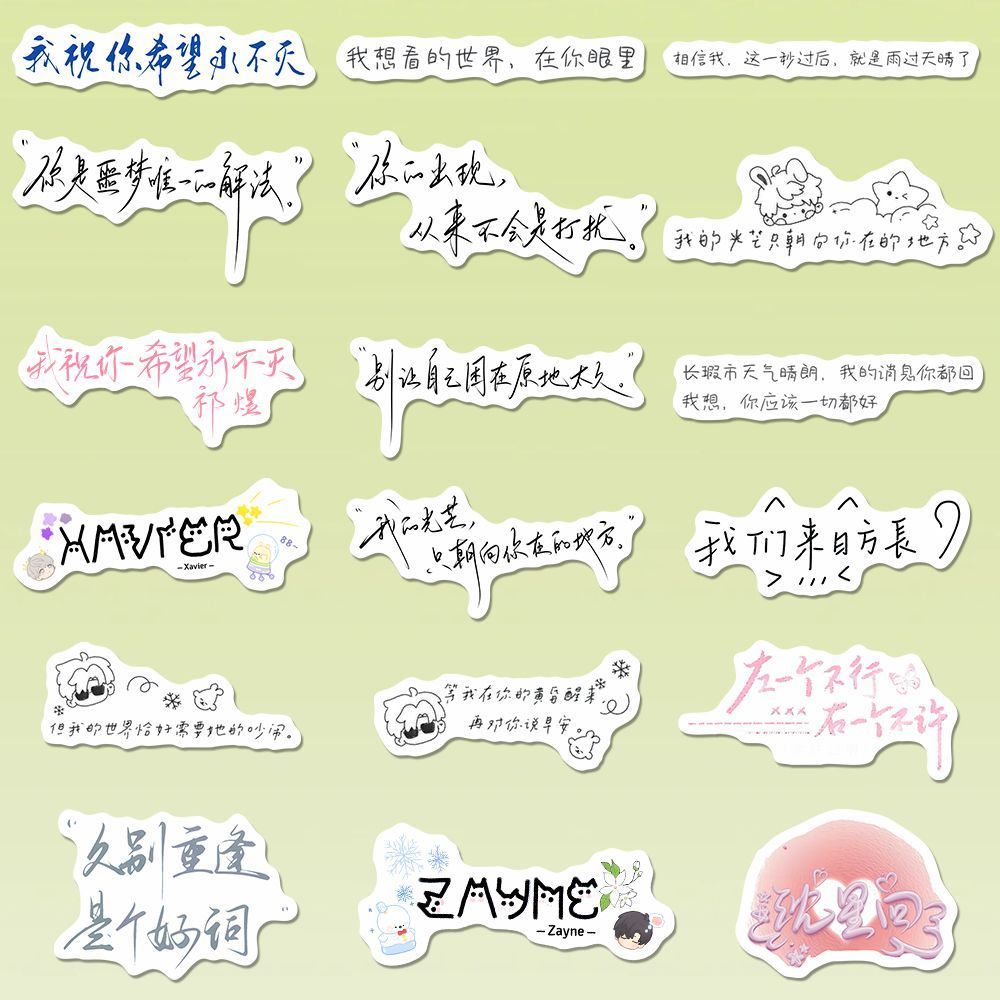 我祝你希望永不灭
我想看的世界，在你眼里
相信我，这一秒过后，就是雨过天晴了
“你是噩梦唯一的解法。”
“你的出现，
从来不会是打扰。”
我的光芒只朝向你在的地方。
我祝你-希望永不灭
祁煜
“别让自己困在原地太久。”
长瑕市天气晴朗，我的消息你都回
我想，你应该一切都好
XAVIER
88~
– Xavier –
“我的光芒，
只朝向你在的地方。”
我们来日方長
但我的世界恰好需要她的吵闹。
等我在你的黄昏醒来，
再对你说早安。
左一个不行
xxx
右一个不许
“久别重逢
是个好词”
ZAYNE
– Zayne –
沈星回